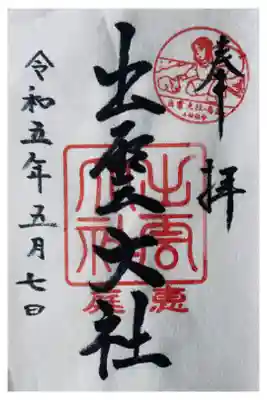 奉拝
出雲大社
出雲
大社
惠庭
令和五年五月七日